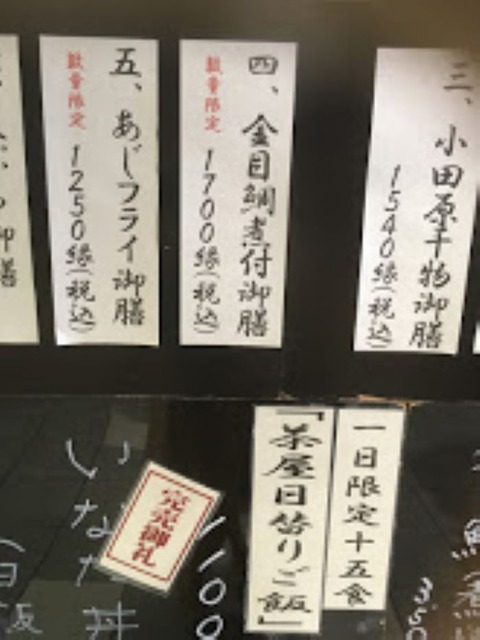 三、小田原干物御膳
1540縁(税込)
四、金目鯛煮付御膳
数量限定
1700縁(税込)
五、あじフライ御膳
数量限定
1250縁(税込)
御膳
一日限定十五食
『茶屋日替りご飯』
完売御礼